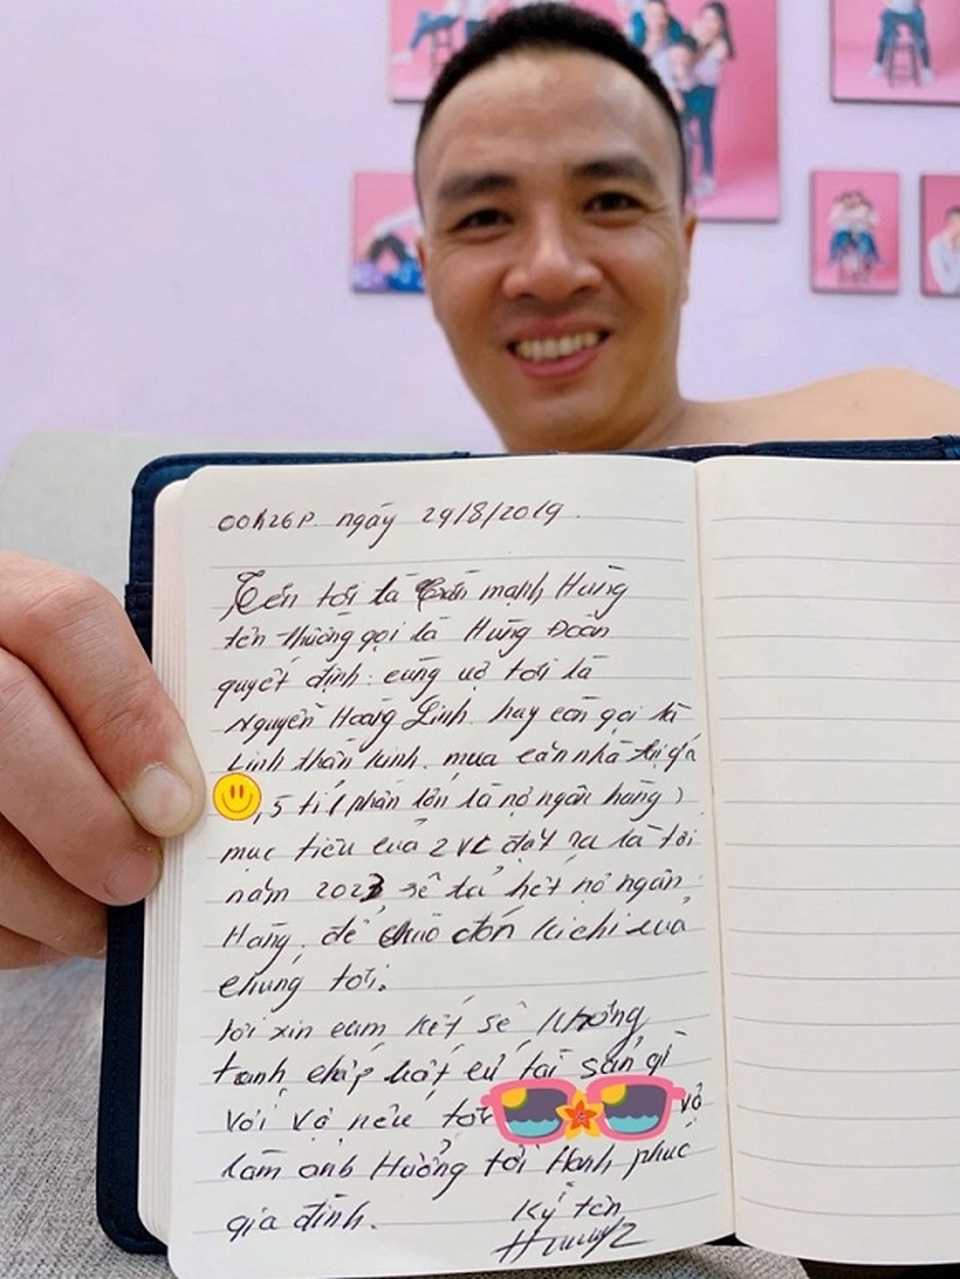 00h26p. ngày 29/8/2019.
Tên tôi là Trần mạnh Hùng
tên thường gọi là Hùng Đoàn
quyết định. cùng vợ tôi là
Nguyễn Hoàng Linh hay còn gọi là
Linh thần kinh. mua căn nhà trị giá
,5 tỉ (phần lớn là nợ ngân hàng)
mục tiêu của 2 VC đặt ra là tới
năm 2023 sẽ trả hết nợ ngân
Hàng. để chào đón kichi của
chúng tôi.
Tôi xin cam kết sẽ không
tranh chấp bất cứ tài sản gì
với vợ nếu tôi
làm ảnh Hưởng tới Hạnh phúc
gia đình. Ký tên